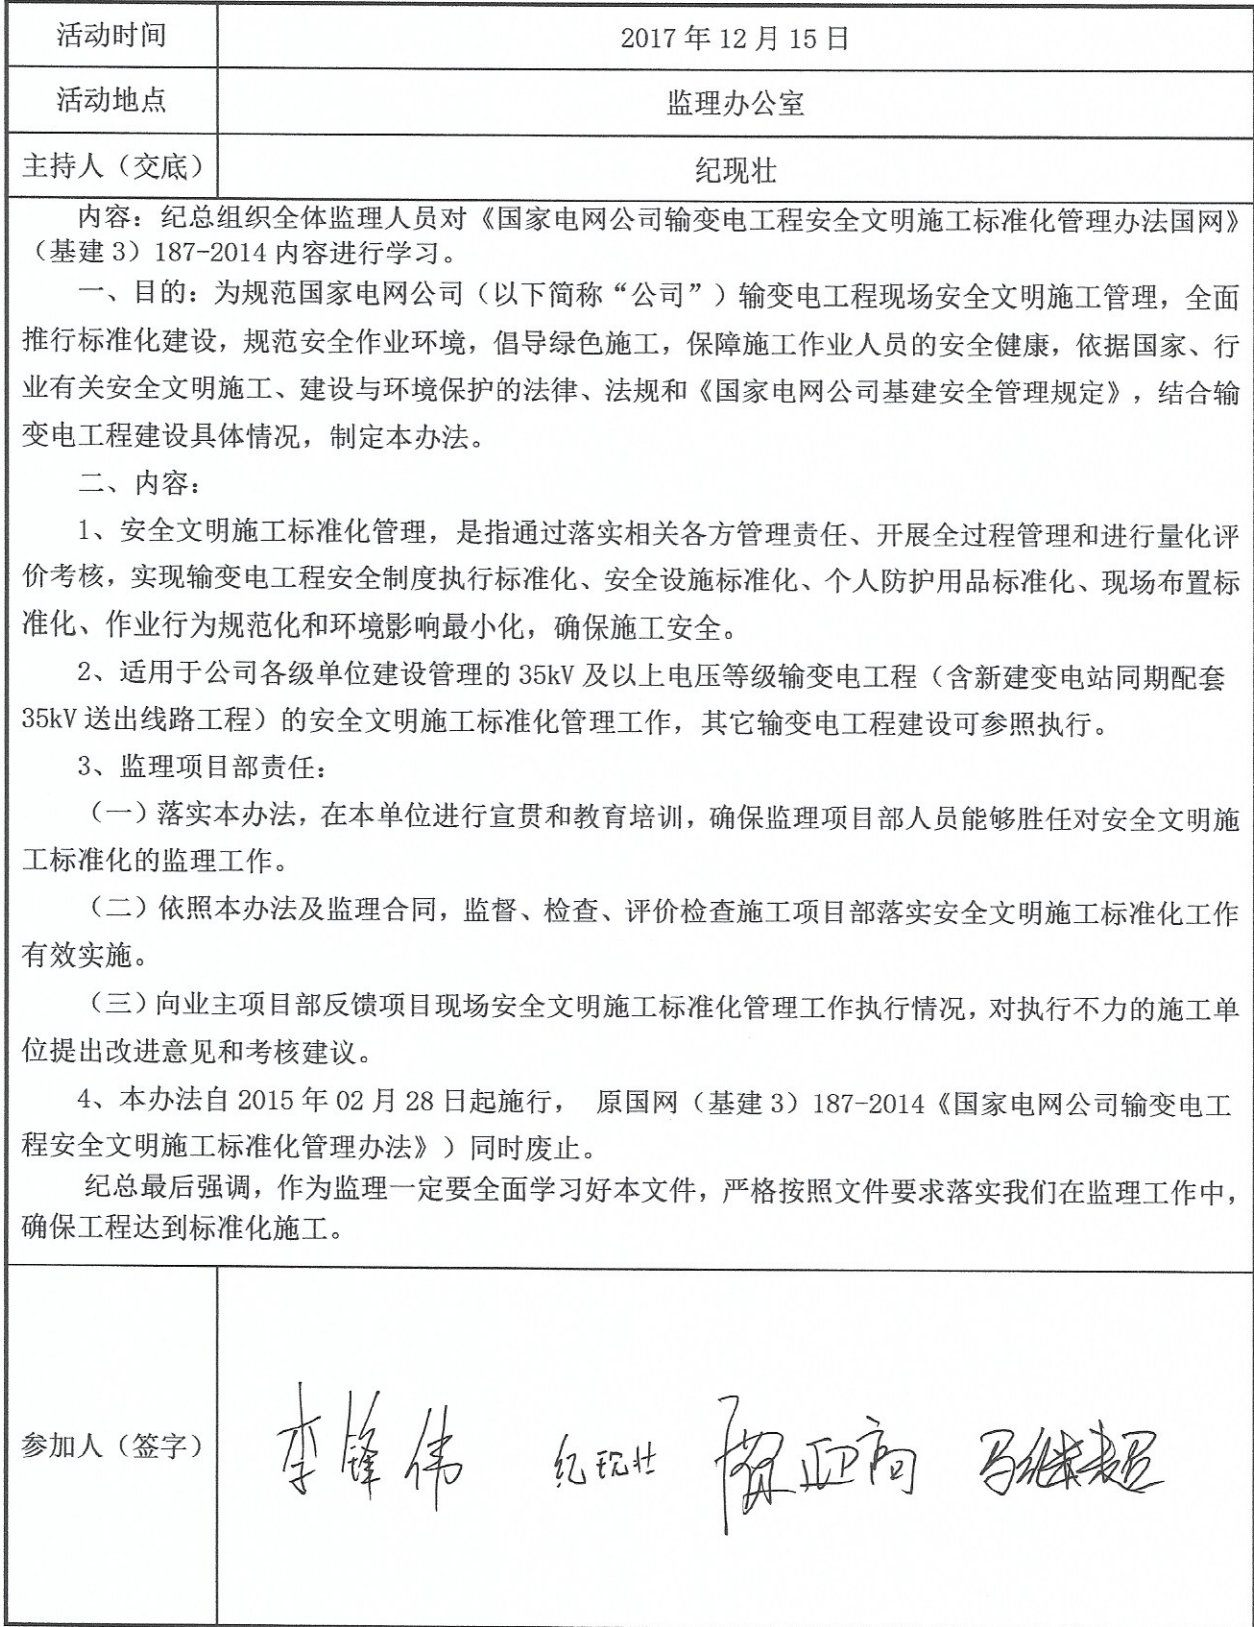 活动时间
2017 年 12 月 15 日
活动地点
监理办公室
主持人（交底）
纪现壮
内容：纪总组织全体监理人员对《国家电网公司输变电工程安全文明施工标准化管理办法国网》
（基建 3）187-2014 内容进行学习。
一、目的：为规范国家电网公司（以下简称“公司”）输变电工程现场安全文明施工管理，全面
推行标准化建设，规范安全作业环境，倡导绿色施工，保障施工作业人员的安全健康，依据国家、行
业有关安全文明施工、建设与环境保护的法律、法规和《国家电网公司基建安全管理规定》，结合输
变电工程建设具体情况，制定本办法。
二、内容：
1、安全文明施工标准化管理，是指通过落实相关各方管理责任、开展全过程管理和进行量化评
价考核，实现输变电工程安全制度执行标准化、安全设施标准化、个人防护用品标准化、现场布置标
准化、作业行为规范化和环境影响最小化，确保施工安全。
2、适用于公司各级单位建设管理的 35kV 及以上电压等级输变电工程（含新建变电站同期配套
35kV 送出线路工程）的安全文明施工标准化管理工作，其它输变电工程建设可参照执行。
3、监理项目部责任：
（一）落实本办法，在本单位进行宣贯和教育培训，确保监理项目部人员能够胜任对安全文明施
工标准化的监理工作。
（二）依照本办法及监理合同，监督、检查、评价检查施工项目部落实安全文明施工标准化工作
有效实施。
（三）向业主项目部反馈项目现场安全文明施工标准化管理工作执行情况，对执行不力的施工单
位提出改进意见和考核建议。
4、本办法自 2015 年 02 月 28 日起施行， 原国网（基建 3）187-2014《国家电网公司输变电工
程安全文明施工标准化管理办法》）同时废止。
纪总最后强调，作为监理一定要全面学习好本文件，严格按照文件要求落实我们在监理工作中，
确保工程达到标准化施工。
参加人（签字）
李锋伟 纪现壮 马继超